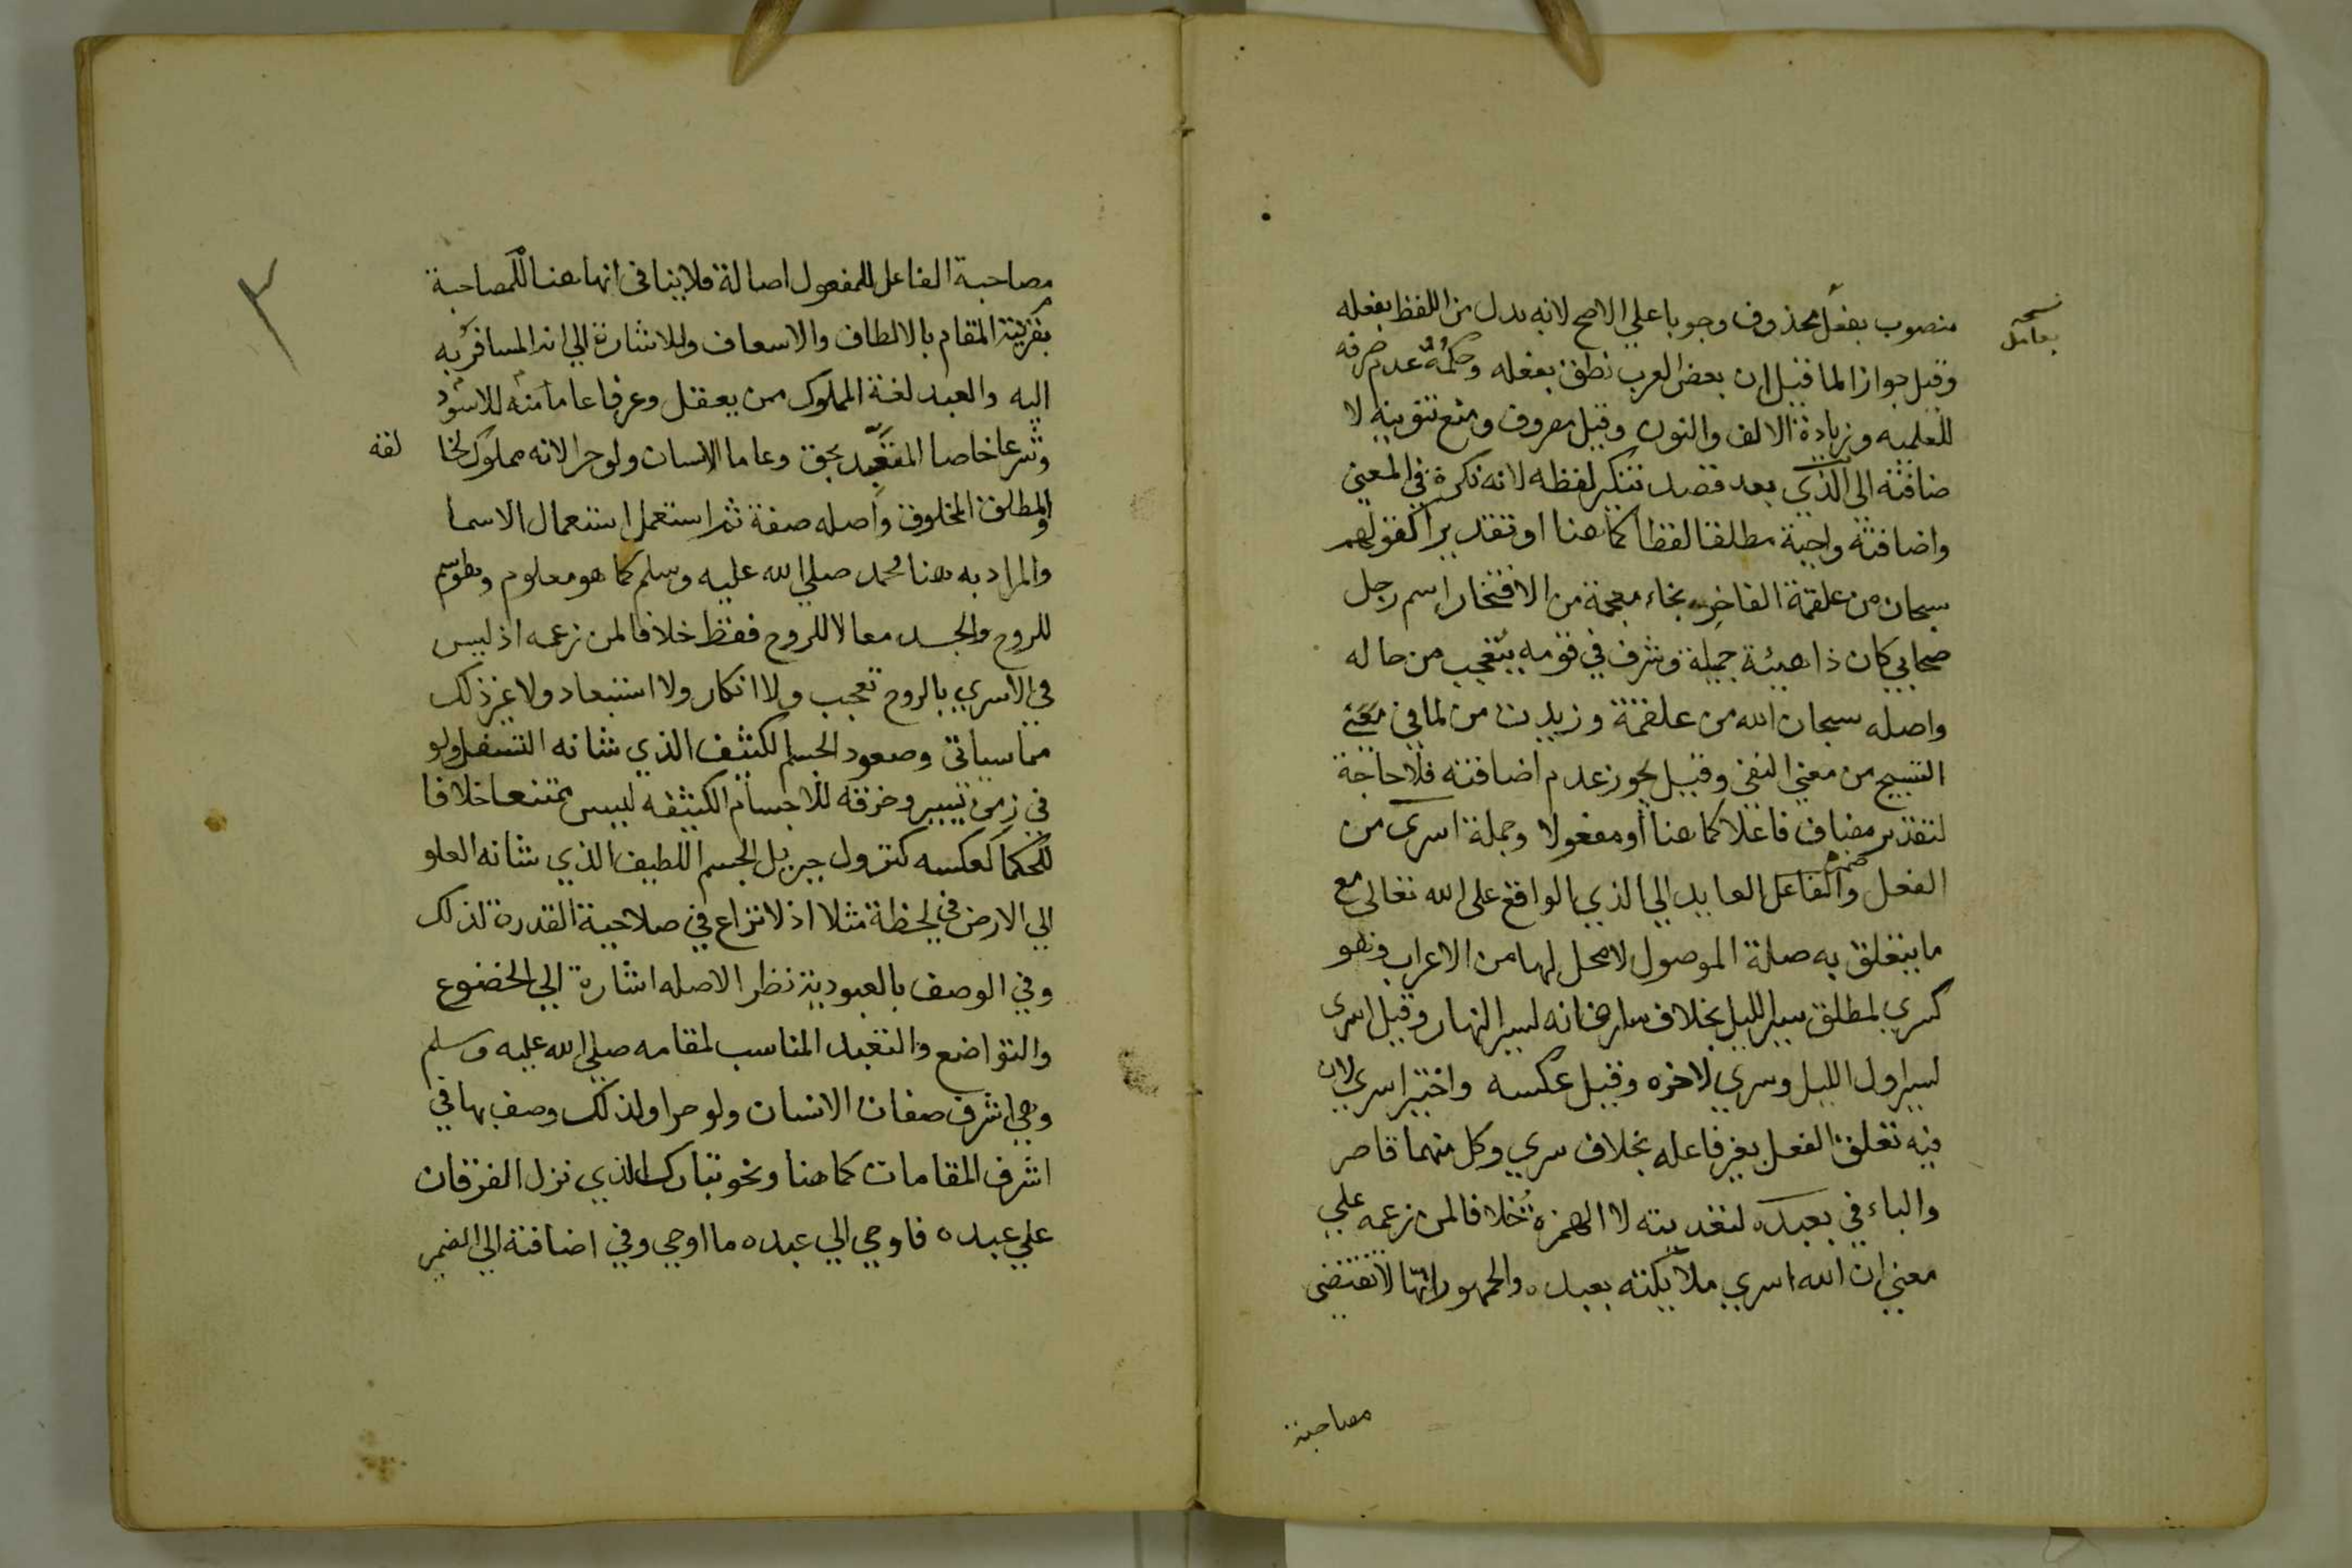 نسخه
بعامل
منصوب بفعل محذوف وجوبا علي الاصح لانه بدل من اللفظ بفعله
وقيل جوازا لما قيل ان بعض العرب نطق بفعله وحكمة عدم صرفه
للعلميه وزيادة الالف والنون وقيل معروف ومنع تنوينه لا
ضافته الى الذي بعد قصد تنكير لفظه لانه نكرة في المعني
واضافته واجبة مطلقا لفظا كما هنا او تقديرا كقولهم
سبحان من علقمة الفاخر بخاء معجمة من الافتخار اسم رجل
صحابي كان ذا هيئة جميلة وشرف في قومه يتعجب من حاله
واصله سبحان الله من علقمة وزيدت من لما في معني
التسبيح من معني النفي وقيل يجوز عدم اضافته فلا حاجة
لتقدير مضاف فاعلا كما هنا أو مفعولا وجملة اسرى من
الفعل وضمير الفاعل العايد الي الذي الواقع على الله تعالى مع
ما يتعلق به صلة الموصول لا محل لها من الاعراب وهو
كسري لمطلق سير الليل بخلاف سار فانه لسير النهار وقيل اسرى
لسير اول الليل وسري لاخره وقيل عكسه واختير اسري لان
فيه تعلق الفعل بغير فاعله بخلاف سري وكل منهما قاصر
والباء في بعبده لتعديته لا الهمزة خلافا لمن زعمه علي
معني ان الله اسري ملائكته بعبده والجمهور انها لا تقتضي
مصاحبة
٣
مصاحبة الفاعل للمفعول اصالة فلا ينافى انها هنا للمصاحبة
بقرينة المقام بالالطاف والاسعاف وللاشارة الي انه المسافر به
اليه والعبد لغة المملوك ممن يعقل وعرفا عاما منه للاسود
وشرعا خاصا المتعبد بحق وعاما الانسان ولو حرا لانه مملوك لخا
لقه
والمطلق المخلوق وأصله صفة ثم استعمل استعمال الاسما
والمراد به هنا محمد صلي الله عليه وسلم كما هو معلوم وهو اسم
للروح والجسد معا لا للروح فقط خلافا لمن زعمه اذ ليس
في الاسري بالروح تعجب ولا انكار ولا استبعاد ولا غير ذلك
مما سياتى وصعود الجسم الكثيف الذي شانه التسفل ولو
في زمن يسير وخرقه للاجسام الكثيفه ليس ممتنعا خلافا
للحكما كعكسه كنزول جبريل الجسم اللطيف الذي شانه العلو
الي الارض في لحظة مثلا اذ لا نزاع في صلاحية القدرة لذلك
وفي الوصف بالعبودية نظرا لاصله اشارة الي الخضوع
والتواضع والتعبد المناسب لمقامه صلي الله عليه وسلم
وهي اشرف صفات الانسان ولو حرا ولذلك وصف بها في
اشرف المقامات كما هنا ونحو تبارك الذي نزل الفرقان
علي عبده فاوحي الي عبده ما اوحي وفي اضافته الي الضمير